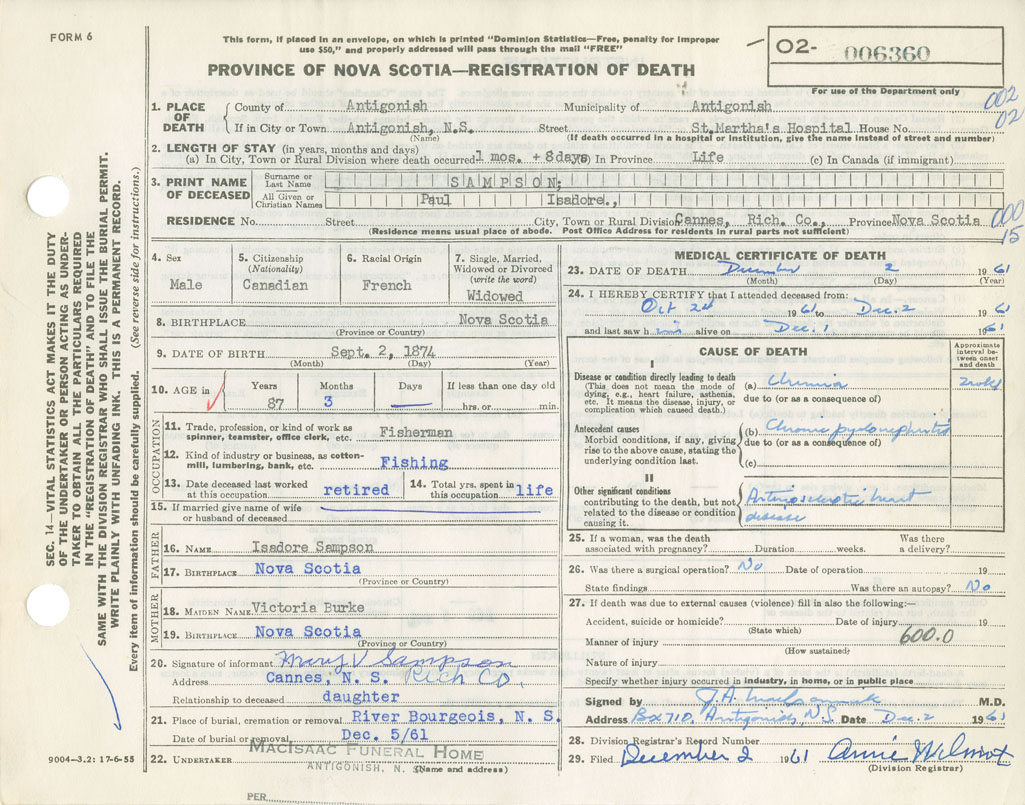 FORM 6
This form, if placed in an envelope, on which is printed "Dominion Statistics—Free, penalty for improper
use $50," and properly addressed will pass through the mail "FREE"
PROVINCE OF NOVA SCOTIA—REGISTRATION OF DEATH
O2- 006360
For use of the Department only
002
02
1. PLACE OF DEATH
County of Antigonish Municipality of Antigonish
If in City or Town Antigonish, N.S. Street St.Martha's Hospital House No.
(Name) (If death occurred in a hospital or institution, give the name instead of street and number)
2. LENGTH OF STAY (in years, months and days)
(a) In City, Town or Rural Division where death occurred 1 mos. + 8days (b) In Province Life (c) In Canada (if immigrant)
3. PRINT NAME OF DECEASED
Surname or Last Name SAMPSON;
All Given or Christian Names Paul Isadore.,
RESIDENCE No. Street City, Town or Rural Division Cannes, Rich. Co., Province Nova Scotia
000
15
(Residence means usual place of abode. Post Office Address for residents in rural parts not sufficient)
4. Sex
Male
5. Citizenship
(Nationality)
Canadian
6. Racial Origin
French
7. Single, Married,
Widowed or Divorced
(write the word)
Widowed
8. BIRTHPLACE Nova Scotia
(Province or Country)
9. DATE OF BIRTH Sept. 2, 1874
(Month) (Day) (Year)
10. AGE in
Years Months Days If less than one day old
87 3 — hrs. or min.
OCCUPATION
11. Trade, profession, or kind of work as
spinner, teamster, office clerk, etc. Fisherman
12. Kind of industry or business, as cotton-
mill, lumbering, bank, etc. Fishing
13. Date deceased last worked
at this occupation retired
14. Total yrs. spent in
this occupation life
15. If married give name of wife
or husband of deceased
FATHER
16. NAME Isadore Sampson
17. BIRTHPLACE Nova Scotia
(Province or Country)
MOTHER
18. MAIDEN NAME Victoria Burke
19. BIRTHPLACE Nova Scotia
(Province or Country)
20. Signature of informant Mary V Sampson
Address Cannes, N. S. Rich Co.
Relationship to deceased daughter
21. Place of burial, cremation or removal River Bourgeois, N. S.
Date of burial or removal Dec. 5/61
22. UNDERTAKER MACISAAC FUNERAL HOME
ANTIGONISH, N. S.
(Name and address)
PER
MEDICAL CERTIFICATE OF DEATH
23. DATE OF DEATH December 2 1961
(Month) (Day) (Year)
24. I HEREBY CERTIFY that I attended deceased from:
Oct 24 1961 to Dec. 2 1961
and last saw him alive on Dec. 1 1961
CAUSE OF DEATH
Approximate
interval be-
tween onset
and death
I
Disease or condition directly leading to death
(This does not mean the mode of
dying, e.g., heart failure, asthenia,
etc. It means the disease, injury, or
complication which caused death.)
(a) Uremia
due to (or as a consequence of)
Antecedent causes
Morbid conditions, if any, giving
rise to the above cause, stating the
underlying condition last.
(b) Chronic pyelonephritis
due to (or as a consequence of)
(c)
II
Other significant conditions
contributing to the death, but not
related to the disease or condition
causing it.
Arteriosclerotic heart
disease
25. If a woman, was the death
associated with pregnancy? Duration weeks. Was there
a delivery?
26. Was there a surgical operation? No Date of operation 19
State findings Was there an autopsy? No
27. If death was due to external causes (violence) fill in also the following:—
Accident, suicide or homicide? Date of injury 19
(State which)
Manner of injury 600.0
(How sustained)
Nature of injury
Specify whether injury occurred in industry, in home, or in public place
Signed by M.D.
Address Bx 710, Antigonish, N.S. Date Dec. 2 1961
28. Division Registrar's Record Number
29. Filed December 2 1961 Annie Wilmot
(Division Registrar)
SEC. 14—VITAL STATISTICS ACT MAKES IT THE DUTY
OF THE UNDERTAKER OR PERSON ACTING AS UNDER-
TAKER TO OBTAIN ALL THE PARTICULARS REQUIRED
IN THE "REGISTRATION OF DEATH" AND TO FILE THE
SAME WITH THE DIVISION REGISTRAR WHO SHALL ISSUE THE BURIAL PERMIT.
WRITE PLAINLY WITH UNFADING INK. THIS IS A PERMANENT RECORD.
Every item of information should be carefully supplied. (See reverse side for instructions.)
9004—3.2: 17-6-55